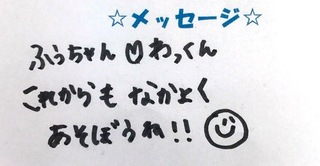 ☆メッセージ☆
ふうちゃん♡わっくん
これからも なかよく
あそぼうね!!